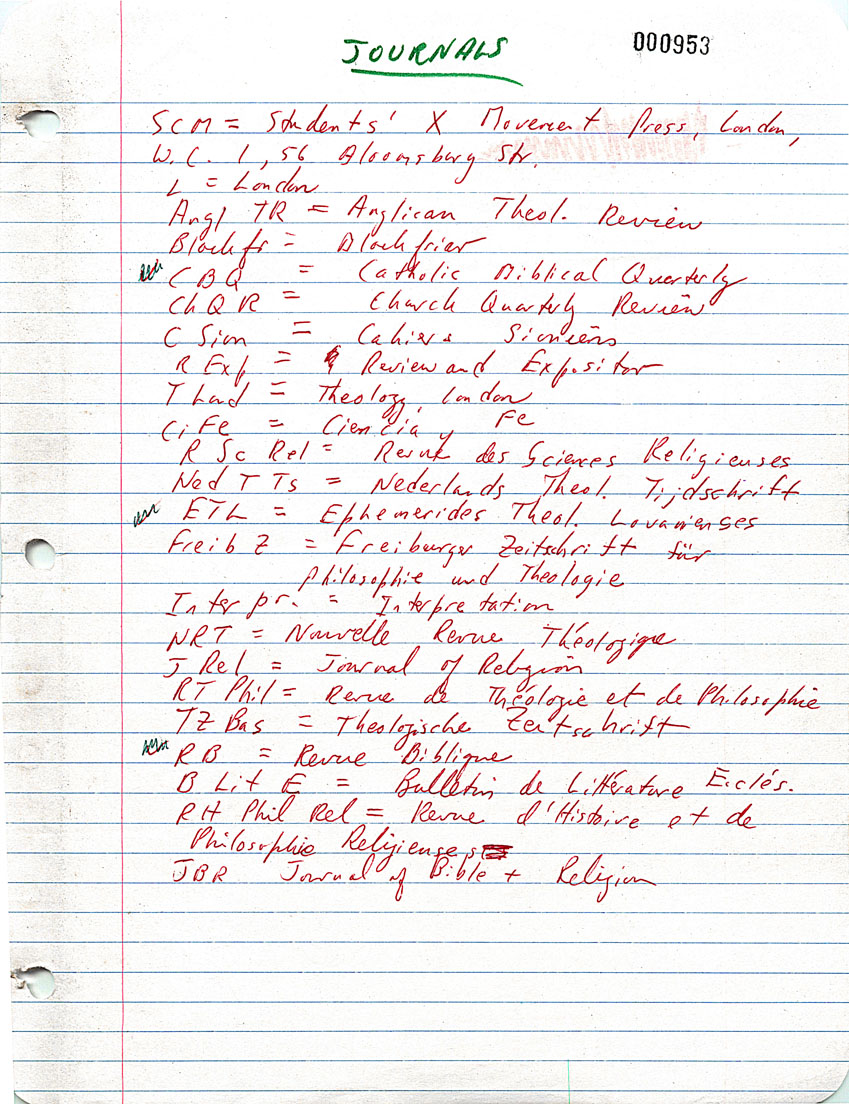 JOURNALS
000953
SCM = Students' X Movement Press, London,
W.C. 1, 56 Bloomsbury Str.
L = London
Angl TR = Anglican Theol. Review
Blackfr = Blackfriar
CBQ = Catholic Biblical Quarterly
ChQR = Church Quarterly Review
C Sion = Cahiers Sioniens
R Exp = Review and Expositor
T Lond = Theology, London
CiFe = Ciencia y Fe
R Sc Rel = Revue des Sciences Religieuses
Ned T Ts = Nederlands Theol. Tijdschrift
ETL = Ephemerides Theol. Lovanienses
Freib Z = Freiburger Zeitschrift für
Philosophie und Theologie
Interpr. = Interpretation
NRT = Nouvelle Revue Théologique
J Rel = Journal of Religion
RT Phil = Revue de Théologie et de Philosophie
TZ Bas = Theologische Zeitschrift
RB = Revue Biblique
B Lit E = Bulletin de Littérature Ecclés.
RH Phil Rel = Revue d'Histoire et de
Philosophie Religieuses
JBR Journal of Bible + Religion